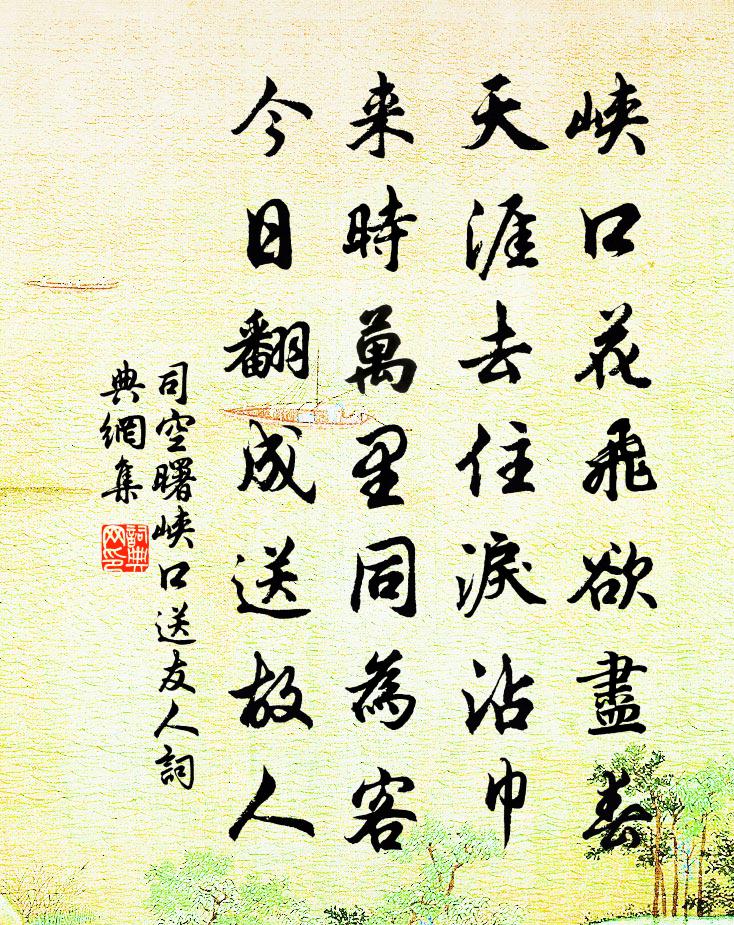 峽口花飛欲盡春
天涯去住淚沾巾
来時萬里同為客
今日翻成送故人
司空曙峽口送友人詞
典網集
詞典
网印